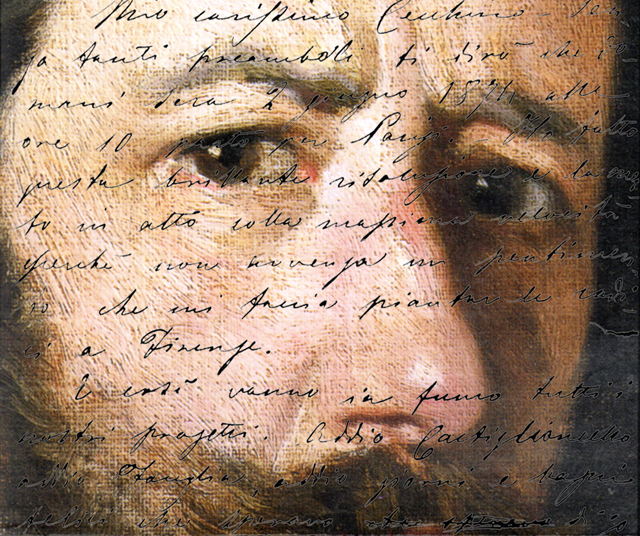 Mio carissimo Cecchino - Sen
za tanti preamboli ti dirò che do
mani sera 2 giugno 1874 alle
ore 10 parto per Parigi. Ho fatta
questa brillante risoluzione e la met
to in atto colla massima velocità
perchè non avvenga un pentimen
to che mi faccia piantar le radi
ci a Firenze.
E così vanno in fumo tutti i
nostri progetti. Addio Castiglioncello
addio Fauglia, addio giorni e
felici che speravo